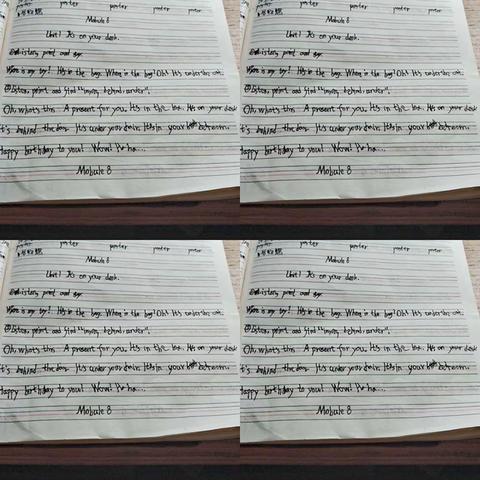 porter porter porter
Mobule 8
Unit1 It's on your desk.
listen, point and say
is my It's in the bag. Where is the bag? Oh! It's under the
②Listen, point and find behind, under".
Oh, what's this A present for you. It's in the box. It's on your desk
t's behind the door. It's under your chair. It's in your bedroom.
Happy birthday to you! Wow! Ha ha...
Mobule 8
porter porter porter
Mobule 8
Unit1 It's on your desk.
listen, point and say
is my It's in the bag. Where is the bag? Oh! It's under the
②Listen, point and find behind, under".
Oh, what's this A present for you. It's in the box. It's on your desk
t's behind the door. It's under your chair. It's in your bedroom.
Happy birthday to you! Wow! Ha ha...
Mobule 8
porter porter porter
Mobule 8
Unit1 It's on your desk.
listen, point and say
is my It's in the bag. Where is the bag? Oh! It's under the
②Listen, point and find behind, under".
Oh, what's this A present for you. It's in the box. It's on your desk
t's behind the door. It's under your chair. It's in your bedroom.
Happy birthday to you! Wow! Ha ha...
Mobule 8
porter porter porter
Mobule 8
Unit1 It's on your desk.
listen, point and say
is my It's in the bag. Where is the bag? Oh! It's under the
②Listen, point and find behind, under".
Oh, what's this A present for you. It's in the box. It's on your desk
t's behind the door. It's under your chair. It's in your bedroom.
Happy birthday to you! Wow! Ha ha...
Mobule 8